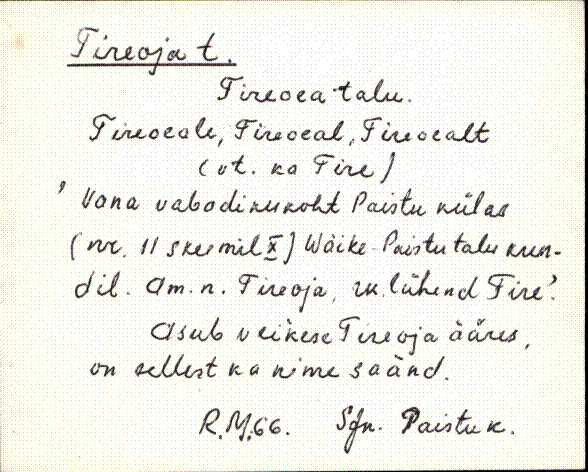 Tireoja t.
Tireoea talu.
Tireoeale, Tireoeal, Tireoealt
(vt. ka Tire)
'Vana vabadikukoht Paistu külas
(nr. 11 skeemil X) Wäike-Paistu talu kun-
dil. Am. n. Tireoja, rk. lühend Tire'.
Asub veikese Tireoja ääres,
on sellest ka nime saand.
R.M.66. Sjn. Paistu k.